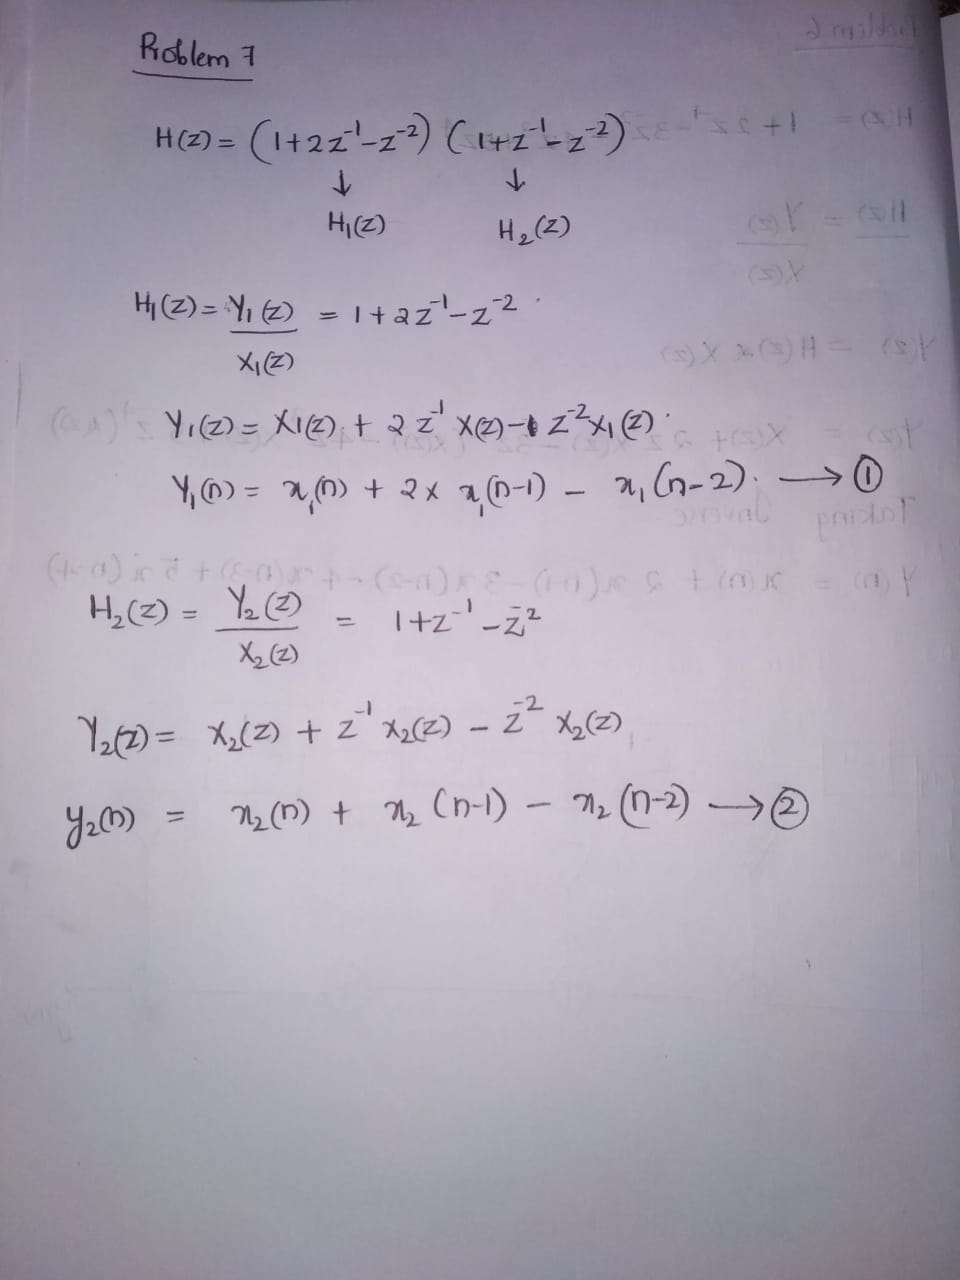 Problem 7
H(z) = (1+2z⁻¹-z⁻²) (1+z⁻¹-z⁻²)
↓ ↓
H₁(z) H₂(z)
H₁(z) = Y₁(z)/X₁(z) = 1+2z⁻¹-z⁻²
Y₁(z) = X₁(z) + 2z⁻¹ X(z) - z⁻² X₁(z)
Y₁(n) = x₁(n) + 2 x x₁(n-1) - x₁(n-2). → ①
H₂(z) = Y₂(z)/X₂(z) = 1+z⁻¹-z⁻²
Y₂(z) = X₂(z) + z⁻¹ X₂(z) - z⁻² X₂(z)
y₂(n) = x₂(n) + x₂(n-1) - x₂(n-2) → ②